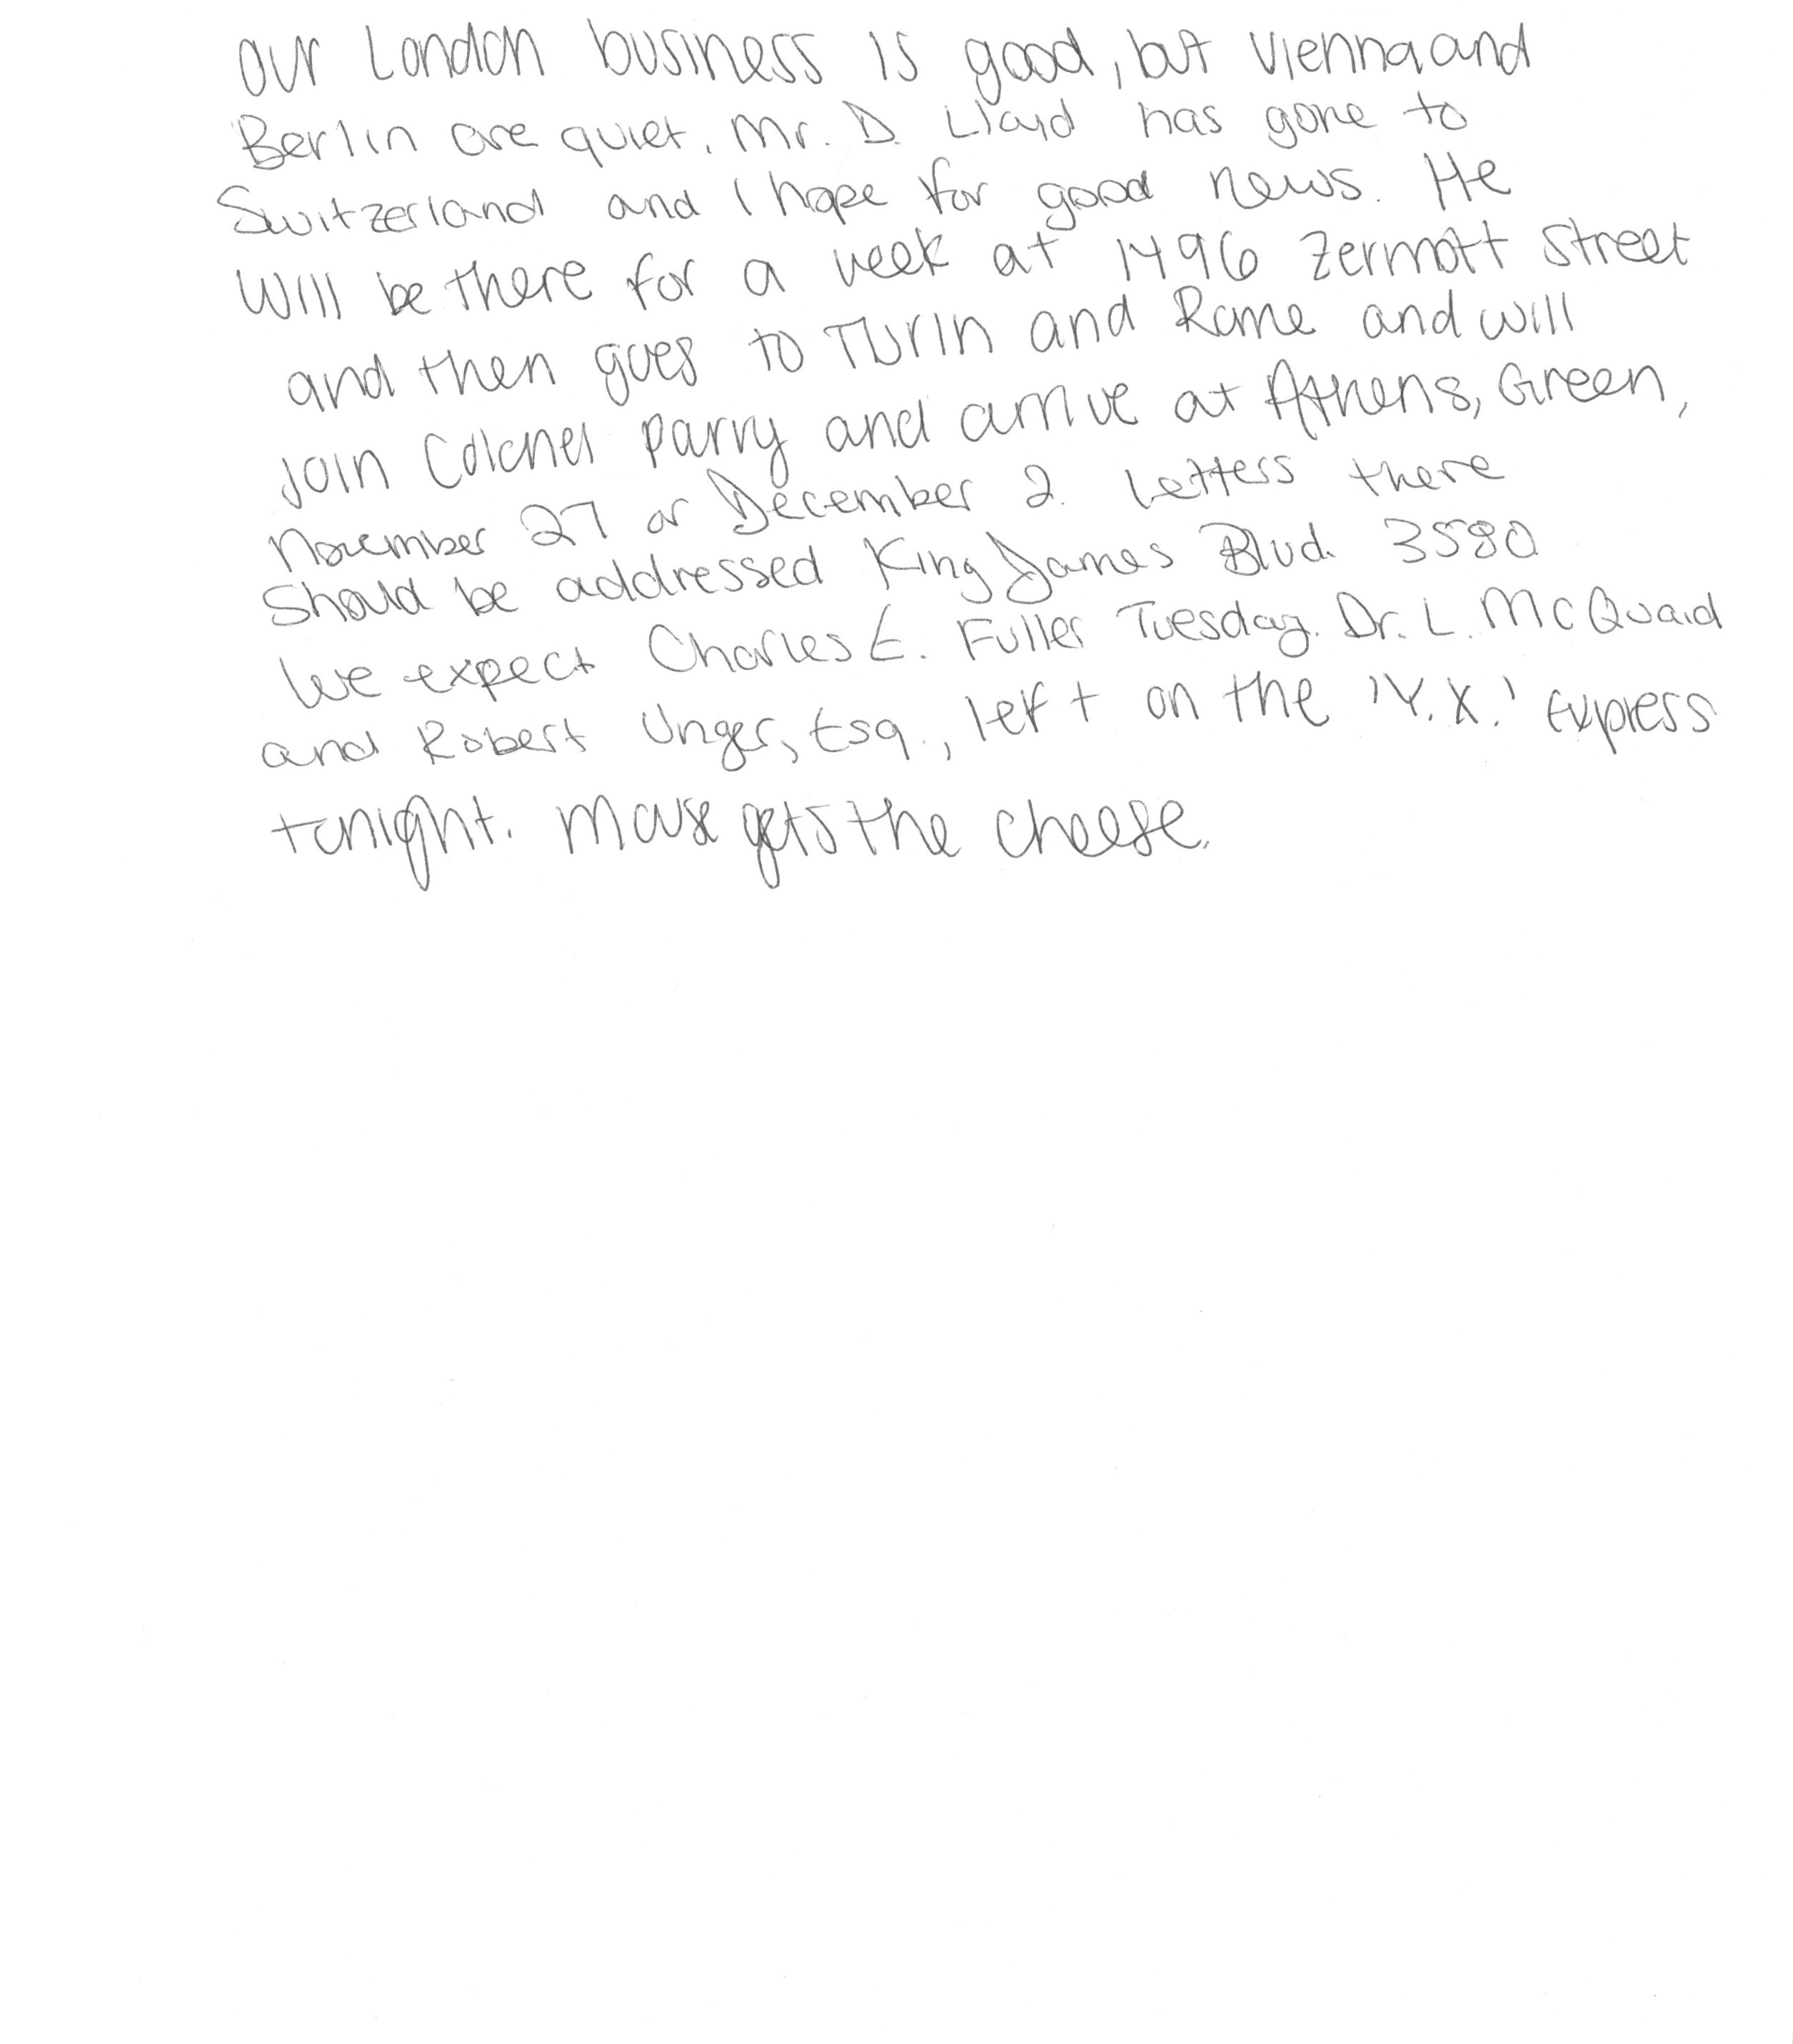 our London business is good, but Vienna and
Berlin are quiet. Mr. D. Lloyd has gone to
Switzerland and I hope for good news. He
will be there for a week at 1496 Zermott Street
and then goes to Turin and Rome and will
join Colonel Parry and arrive at Athens, Green,
November 27 or December 2. Letters there
should be addressed King James Blvd. 3580
We expect Charles E. Fuller Tuesday. Dr. L. McQuaid
and Robert Unger, Esq., left on the 'Y.X.' Express
tonight. Mouse gets the cheese.